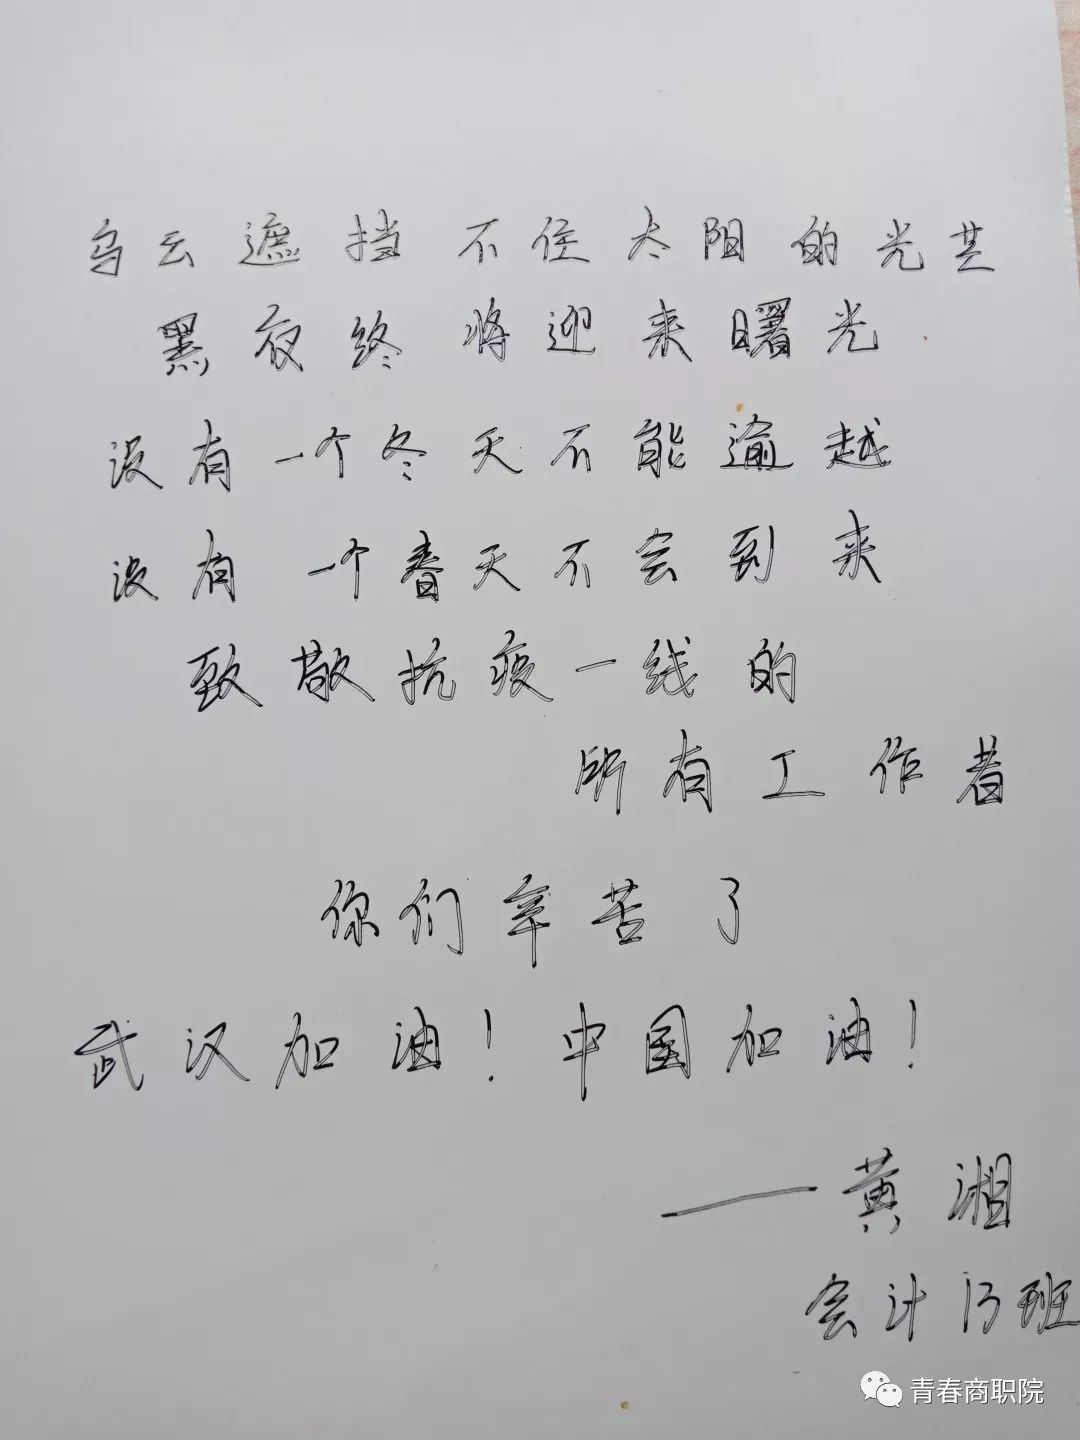 乌云遮挡不住太阳的光芒
黑夜终将迎来曙光
没有一个冬天不能逾越
没有一个春天不会到来
致敬抗疫一线的
所有工作者
你们辛苦了
武汉加油！中国加油！
——黄湘
会计13班
青春商职院